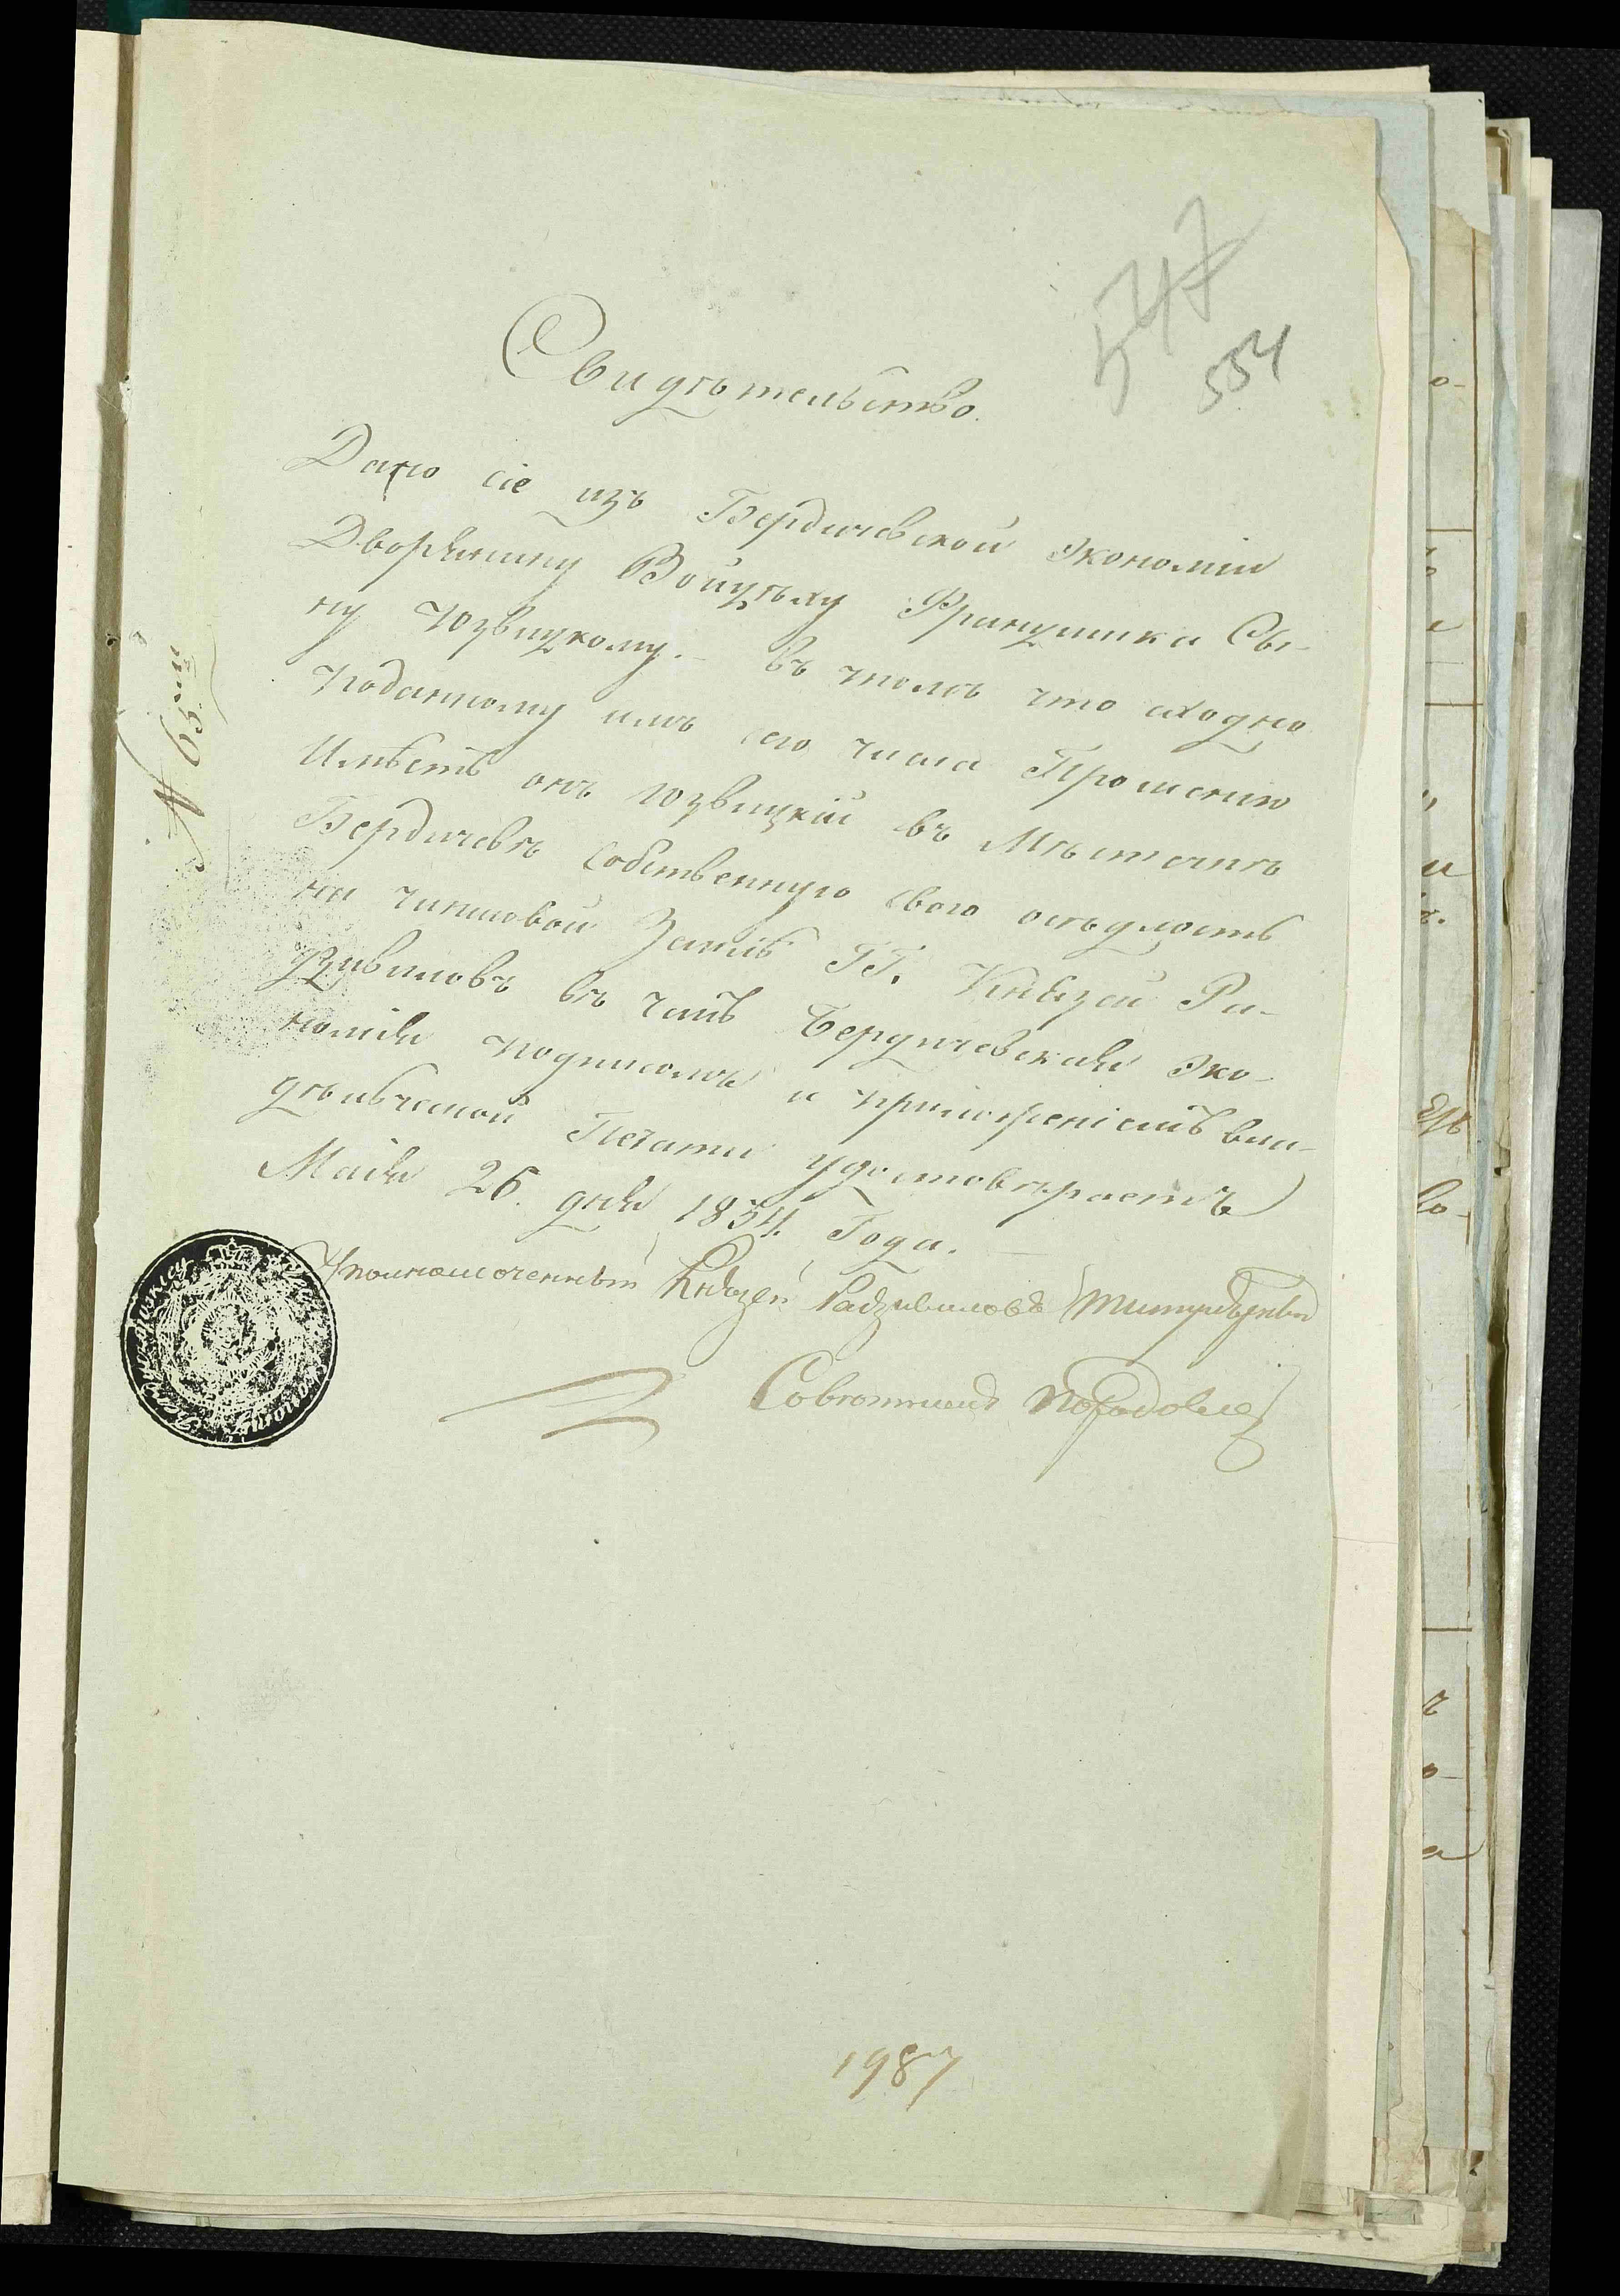 547
554
Свидѣтельство.
Дано сіе изъ Бердичевской Экономіи
Дворянину Войцѣху Францишка Сы-
ну Юзвицкому. – въ томъ что сходно
поданному имъ сего числа Прошенію
Имѣетъ онъ Юзвицкій въ Мѣстечкѣ
Бердичевѣ собственную свою осѣдлость
на чиншовой Землѣ ГГ. Князей Ра-
дзивиловъ въ чемъ Бердичевская Эко-
номія подписомъ и приложеніемъ вла-
дѣльческой Печати удостовѣряетъ
Мая 26. дня 1834 Года. —
Уполномоченный Князей Радзивиловъ Титулярный
Совѣтникъ
№ 65
1987